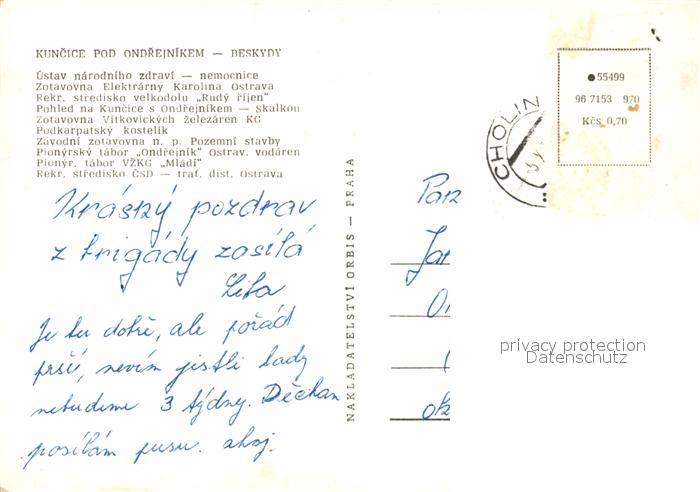 KUNČICE POD ONDŘEJNÍKEM — BESKYDY
Ústav národního zdraví — nemocnice
Zotavovna Elektrárny Karolina Ostrava
Rekr. středisko velkodolu „Rudý říjen"
Pohled na Kunčice s Ondřejníkem — Skalkou
Zotavovna Vítkovických železáren KG
Podkarpatský kostelík
Závodní zotavovna n. p. Pozemní stavby
Pionýrský tábor „Ondřejník" Ostrav. vodáren
Pionýr. tábor VŽKG „Mládí"
Rekr. středisko ČSD — trať. dist. Ostrava
Krásný pozdrav
z brigády zasílá
Liba
Je tu dobře, ale pořád
prší, nevím jestli tady
nebudeme 3 týdny. Děckam
posílám pusu. ahoj.
NAKLADATELSTVÍ ORBIS — PRAHA
CHOLIN
55499
96 7153 970
Kčs 0,70
privacy protection
Datenschutz